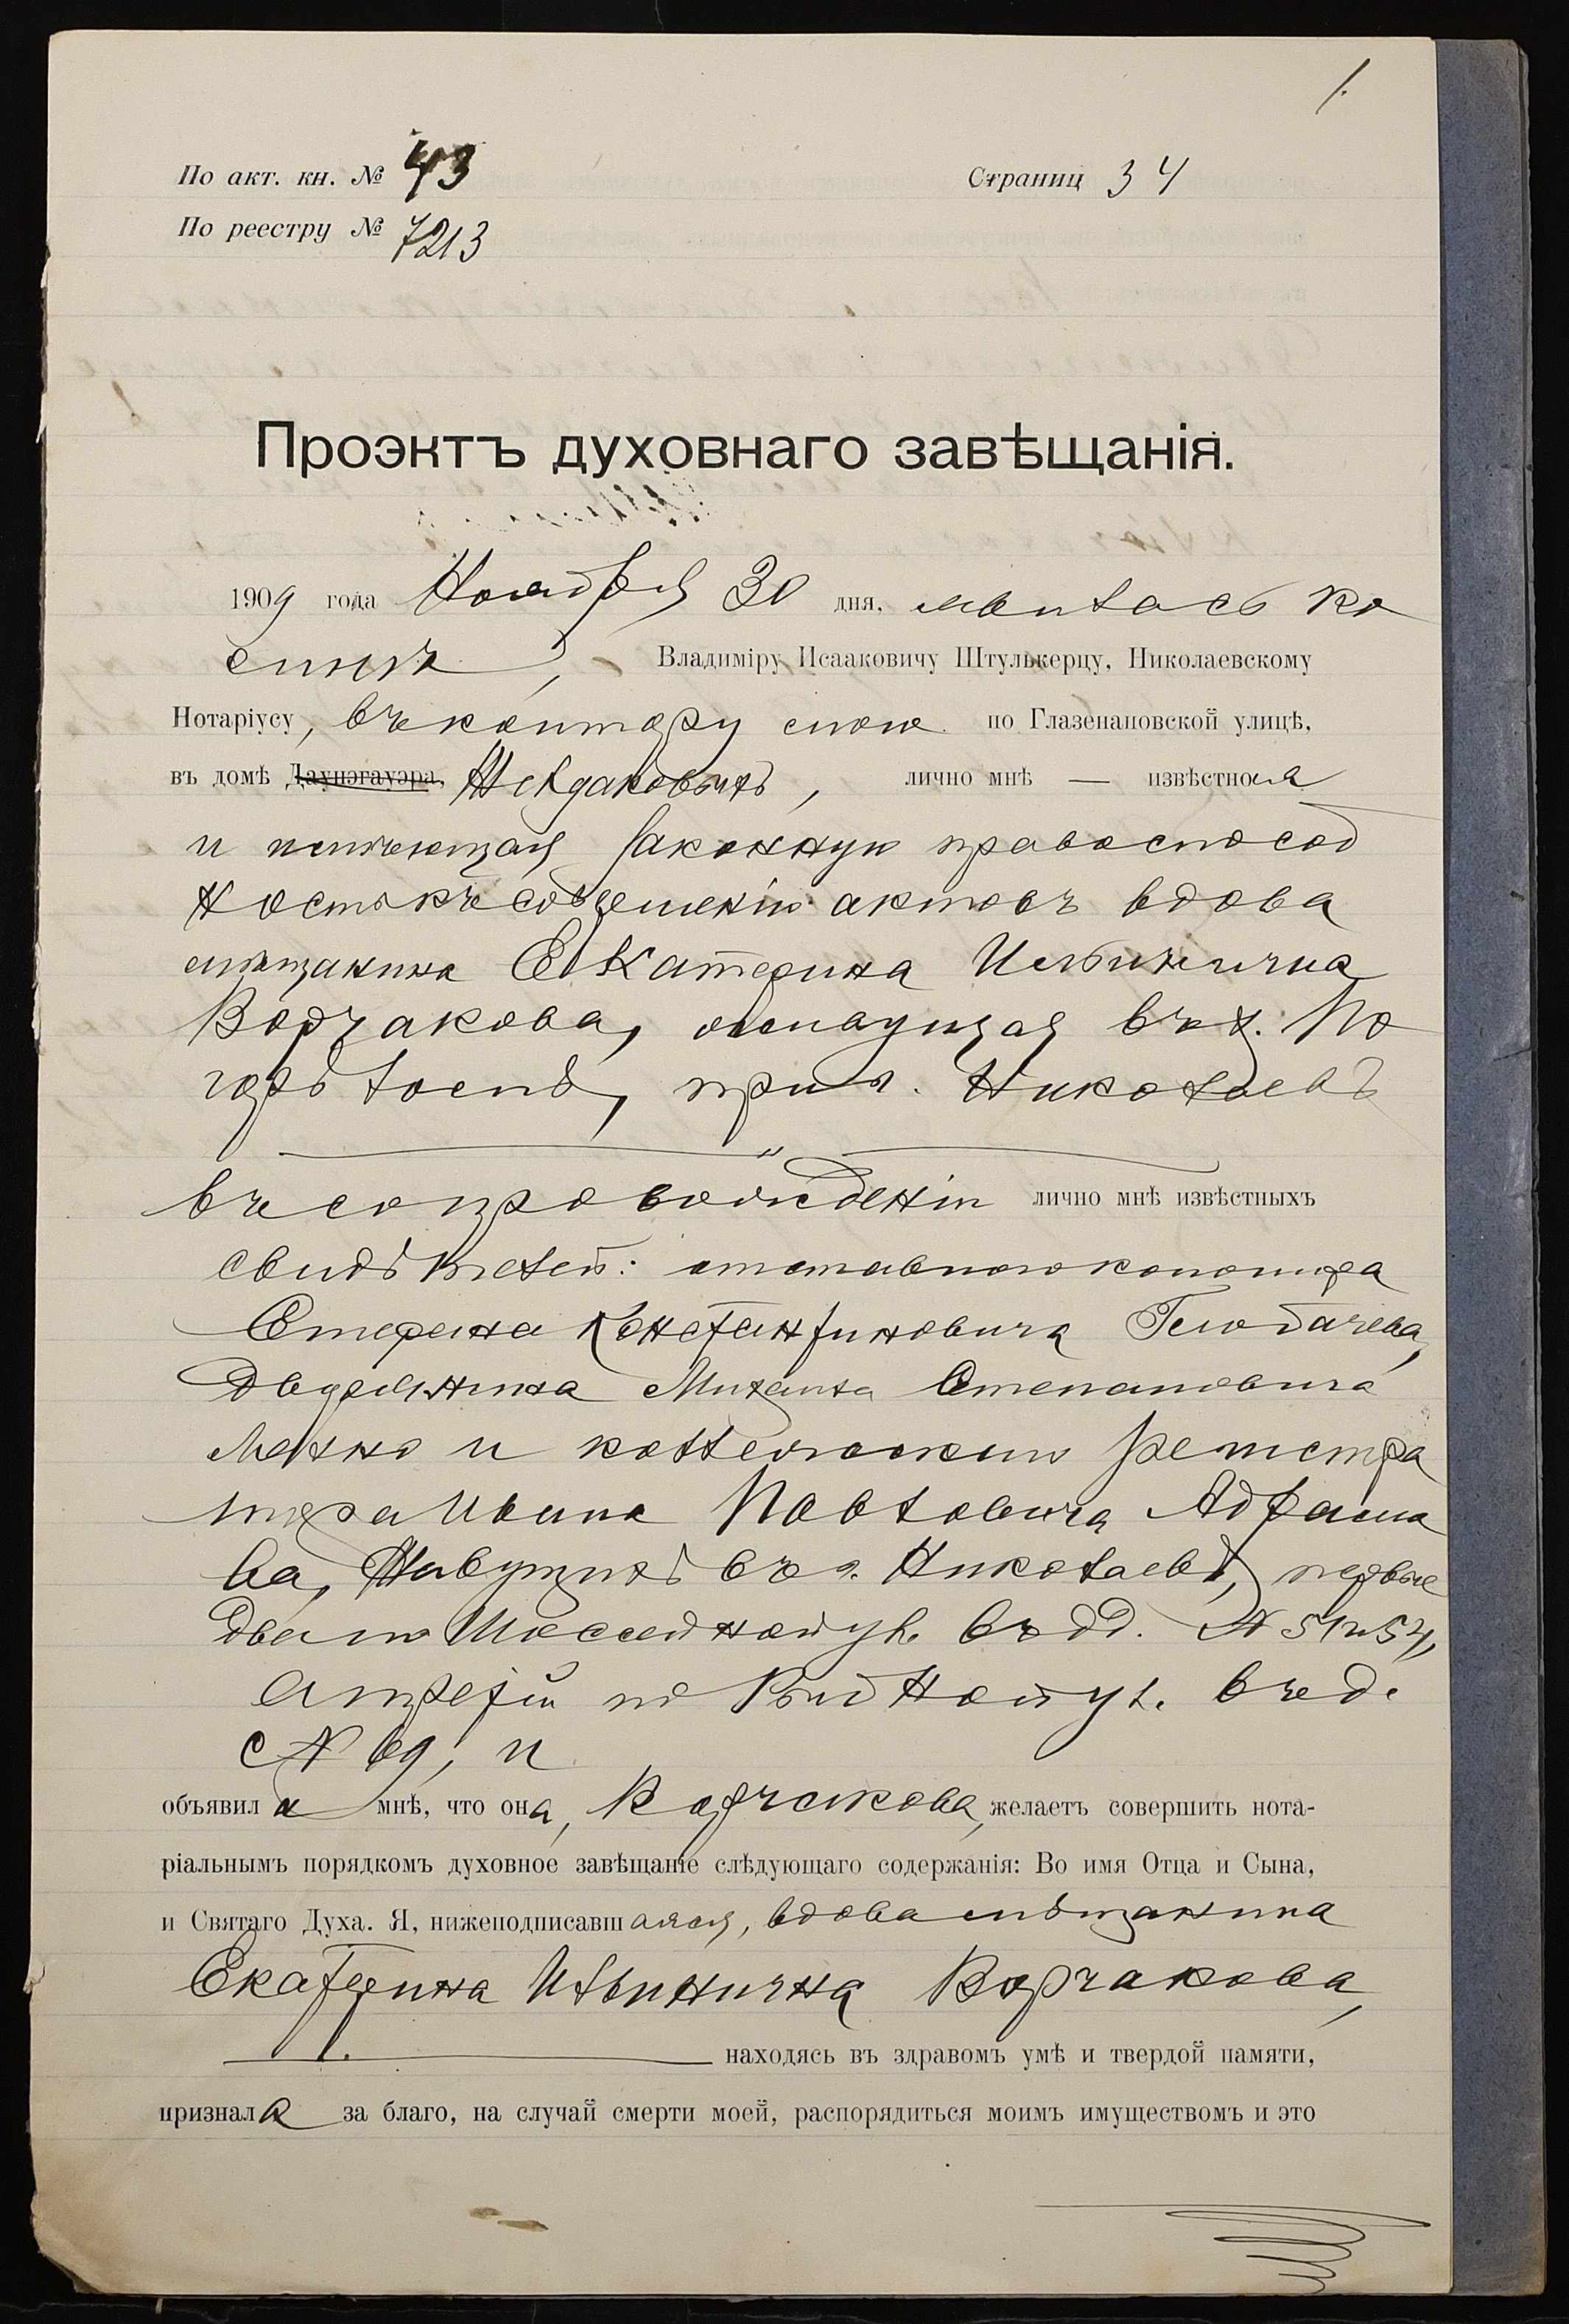 1.
По акт. кн. № 43
Страниц 34
По реестру № 7213
Проэктъ духовнаго завѣщанія.
1909 года Ноября 30 дня, явилась ко
мнѣ, Владиміру Исааковичу Штулькерцу, Николаевскому
Нотаріусу, въ контору мою по Глазенаповской улицѣ,
въ домѣ Даунэгауэра, лично мнѣ — извѣстная
и имѣющая законную правоспособ
ность къ совершенію актовъ вдова
мѣщанина Екатерина Ильинична
Корчакова, живущая въ х. По
горѣловѣ, при г. Николаевѣ
въ сопровожденіи лично мнѣ извѣстныхъ
свидѣтелей: отставного
Стефана Константиновича
дворянина Михаила Степановича
и коллежскаго регистра
тора Ивана Павловича Абрамо
ва, живущихъ въ г. Николаевѣ, первые
два по ул. въ дд. № 51 и 54,
а третій по Рыбной ул. въ д.
№ 69, и
объявила мнѣ, что она, Корчакова, желаетъ совершить нота-
ріальнымъ порядкомъ духовное завѣщаніе слѣдующаго содержанія: Во имя Отца и Сына,
и Святаго Духа. Я, нижеподписавшаяся, вдова мѣщанина
Екатерина Ильинична Корчакова,
находясь въ здравомъ умѣ и твердой памяти,
признала за благо, на случай смерти моей, распорядиться моимъ имуществомъ и это